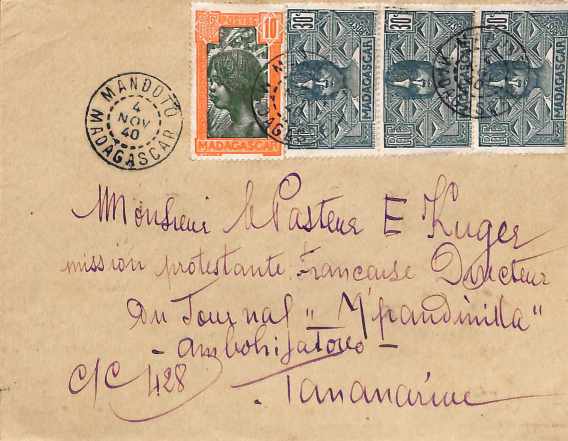 POSTES 10c
MADAGASCAR
30c MADAGASCAR
30c MADAGASCAR
30c MADAGASCAR
MANDOTO
4
NOV
40
MADAGASCAR
Monsieur le Pasteur E Kuger
mission protestante Française Directeur
Du Journal "M'pandinika"
- Ambohijatovo -
C/C 428
Tananarive